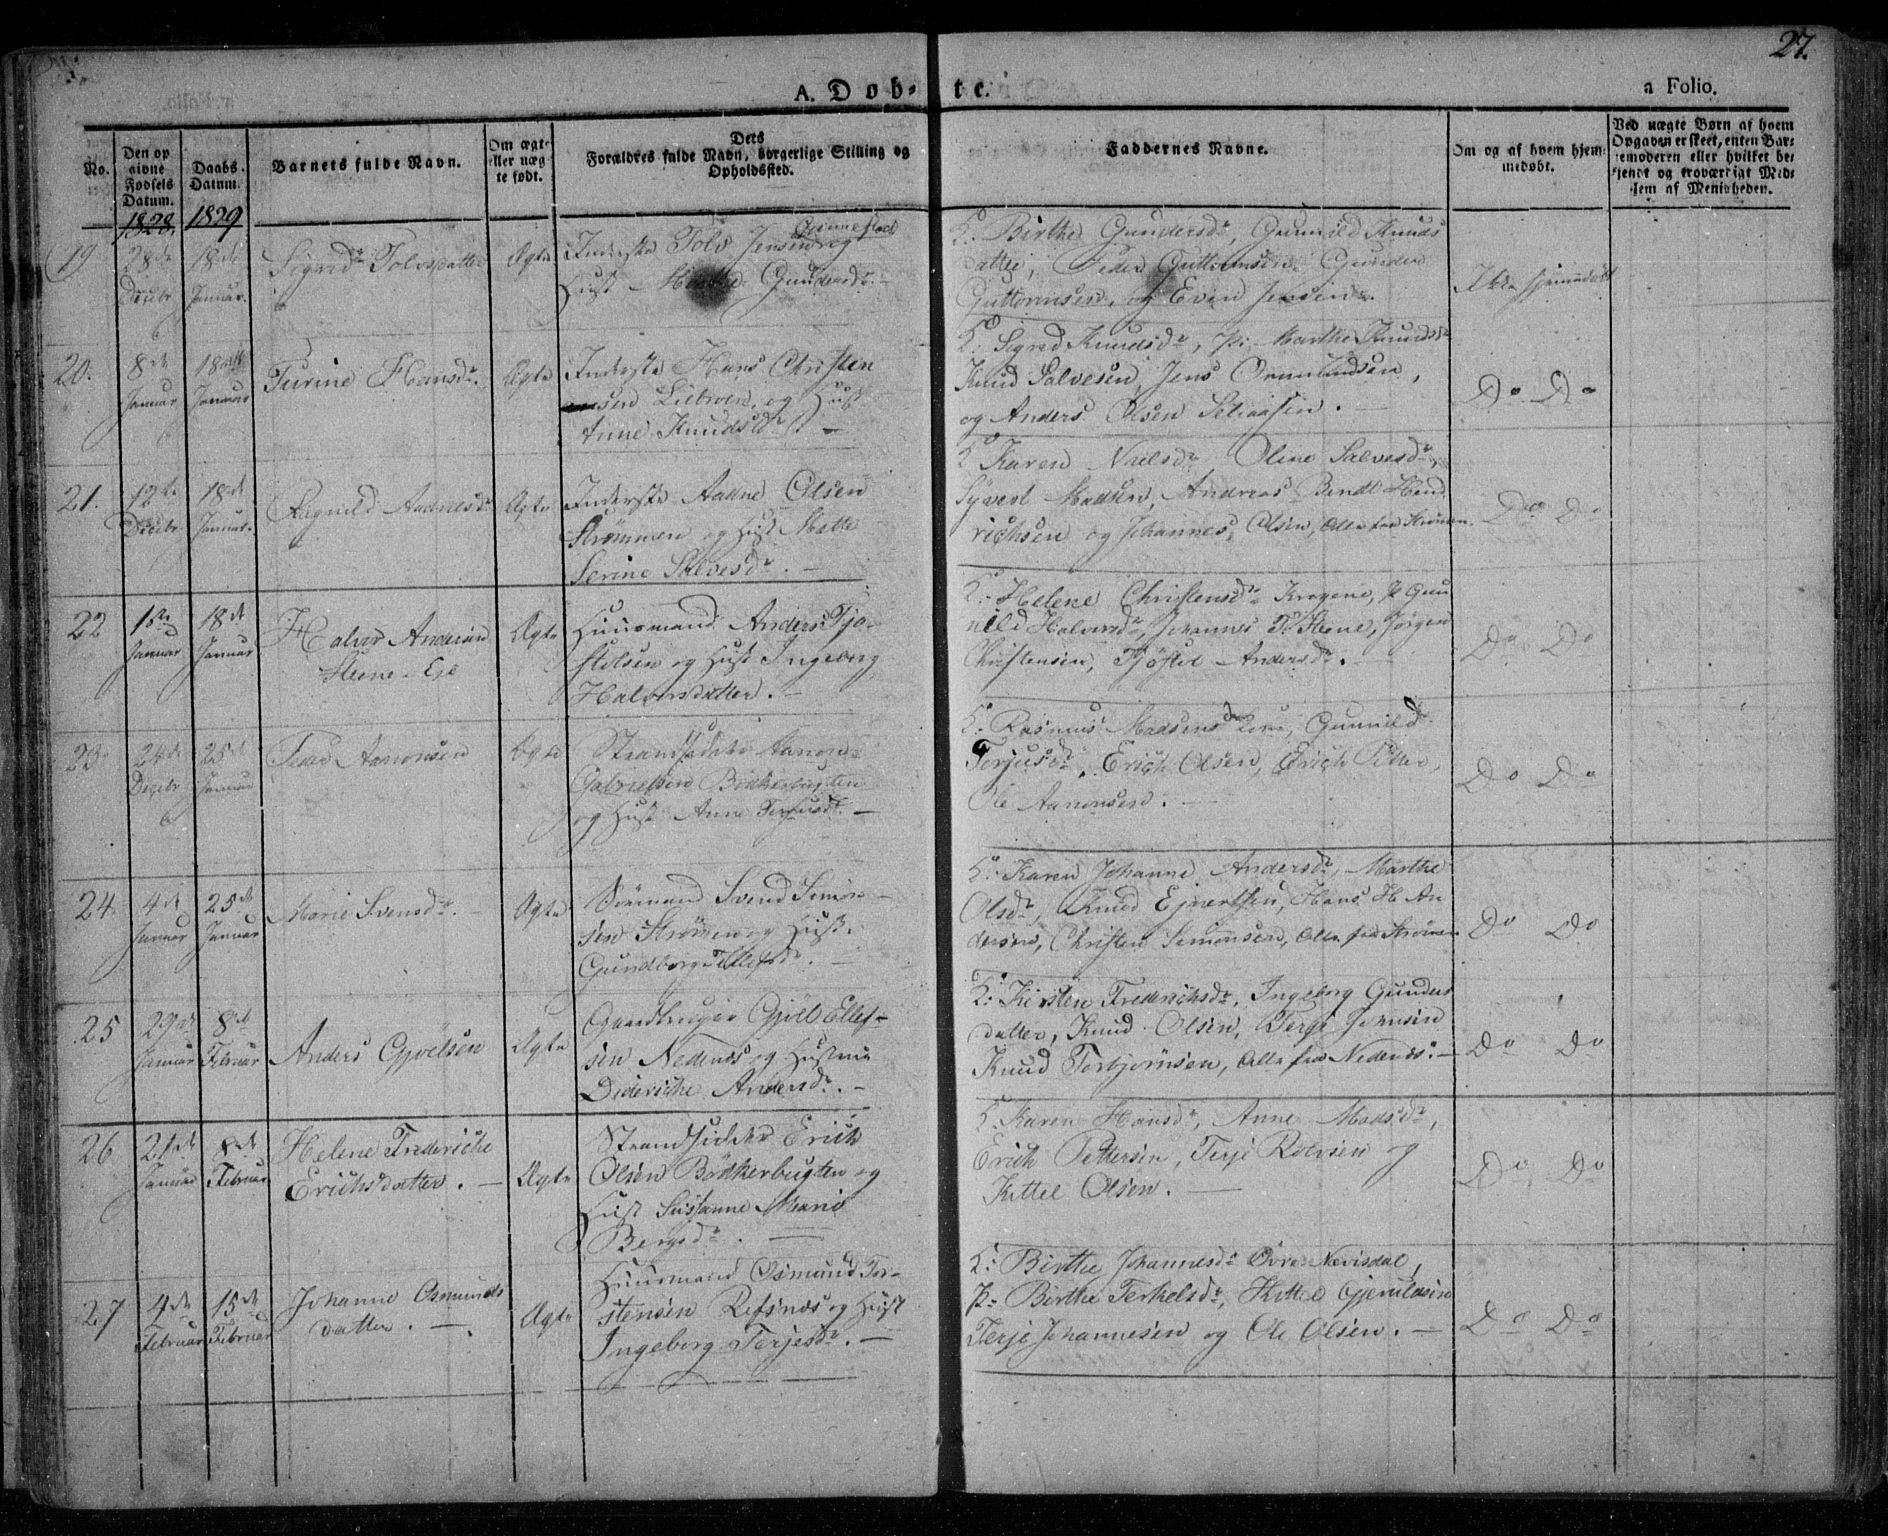 27.
A. Døb-te.
a Folio.
No.
Den op
givne
Fødsels
Datum.
Daabs-
Datum.
Barnets fulde Navn.
Om ægte
eller uæg-
te født.
Dets
Forældres fulde Navn, borgerlige Stilling og
Opholdssted.
Faddernes Navne.
Om og af hvem hjem-
medøbt.
Ved uægte Børn af hvem
Opgaven er skeet, enten Bar-
nemoderen eller hvilket be-
kjendt og troværdigt Med-
lem af Menigheden.
1828.
1829
19
28de
Decbr
18de
Januar.
Sigrid Tolvsdatter
Ægte
Inderste Tolv Jensen og
Hust Marthe Gundersdr. -
K. Birthe Gundersdr, Gunild Knuds
datter, Peder Guttormsen, Gunder
Guttormsen, og Even Jensen.
Ikke hjemmedøbt
20.
8de
Januar
18de
Januar
Turine Hansdr.
Ægte
Inderste Hans Christen
sen Libroen, og Hust
Anne Knudsdr -
K. Sigrid Knudsdr, p. Marthe Knudsdr
Knud Salvesen, Jens Omundsen,
og Anders Olsen
Do Do
21.
12te
Decbr
18de
Januar.
Ragnild Aadnesdr
Ægte
Inderste Aadne Olsen
Strømmen og Hust Mette
Serine Salvesdr. -
K. Karen Nielsdr Oline Salvesdr,
Syvert Madsen, Andreas Bendt Hend
richsen og Johannes Olsen, Alle fra Strømen.
Do Do
22
1ste
Januar
18de
Januar
Halvor Andersen
Steene-Eje
Ægte
Huusmand Anders Tjø-
stelsen og Hust Ingeborg
Halvorsdatter. -
K. Helene Christensdr Krogene, p Gun
nild Halvorsdr, Johannes T. Steene, Jørgen
Christensen, Tjøstel Andersdr.
Do Do
23.
24de
Decbr
25de
Januar
Aanonsen
Ægte
Strandsidder Aanon
Gabrielsen Bødkerbugten
og Hust Anne Terjusdr. -
K. Rasmus Madsens Kone, Gunnild
Terjusdr, Erich Olsen, Erich Petter,
Ole Aanonsen. -
Do Do
24
4de
Januar
25de
Januar
Marie Svensdr. -
Ægte
Sømand Svend Simon-
sen Strømen og Hust.
Gundborg Tellefsdr. -
K. Karen Johanne Andersdr, Marthe
Olsdr, Knud Ejvertsen, Hans H. An
dersen, Christen Simonsen, Alle fra Strømen
Do Do
25
29de
Januar
8de
Februar
Anders Gjøelsen
Ægte
Gaardbruger Gjøel Ellef-
sen Nedenæs og Hustrue
Dideriche Andersdr. -
K. Kirsten Frederichsdr, Ingeborg Gunders
datter, Knud Olsen, Terje Jensen
Knud Torbjørnsen, Alle fra Nedenæs. -
Do Do
26
21de
Januar
8de
Februar
Helene Frederiche
Erichsdatter. -
Ægte
Strandsidder Erich
Olsen Bødkerbugten og
Hust Susanne Marie
Bergsdr. -
K. Karen Hansdr, Anne Madsdr,
Erich Pettersen, Terje Roersen og
Kittel Olsen. -
Do Do
27
4de
Februar
15de
Februar
Johanne Osmunds
datter. -
Ægte
Huusmand Osmund Tor-
stensen Refsnæs og Hust
Ingeborg Terjesdr. -
K. Birthe Johannesdr Øvre Nævisdal,
p. Birthe Terkelsdr, Kittel Gjeruldsen
Terje Johannesen og Ole Olsen. -
Do Do